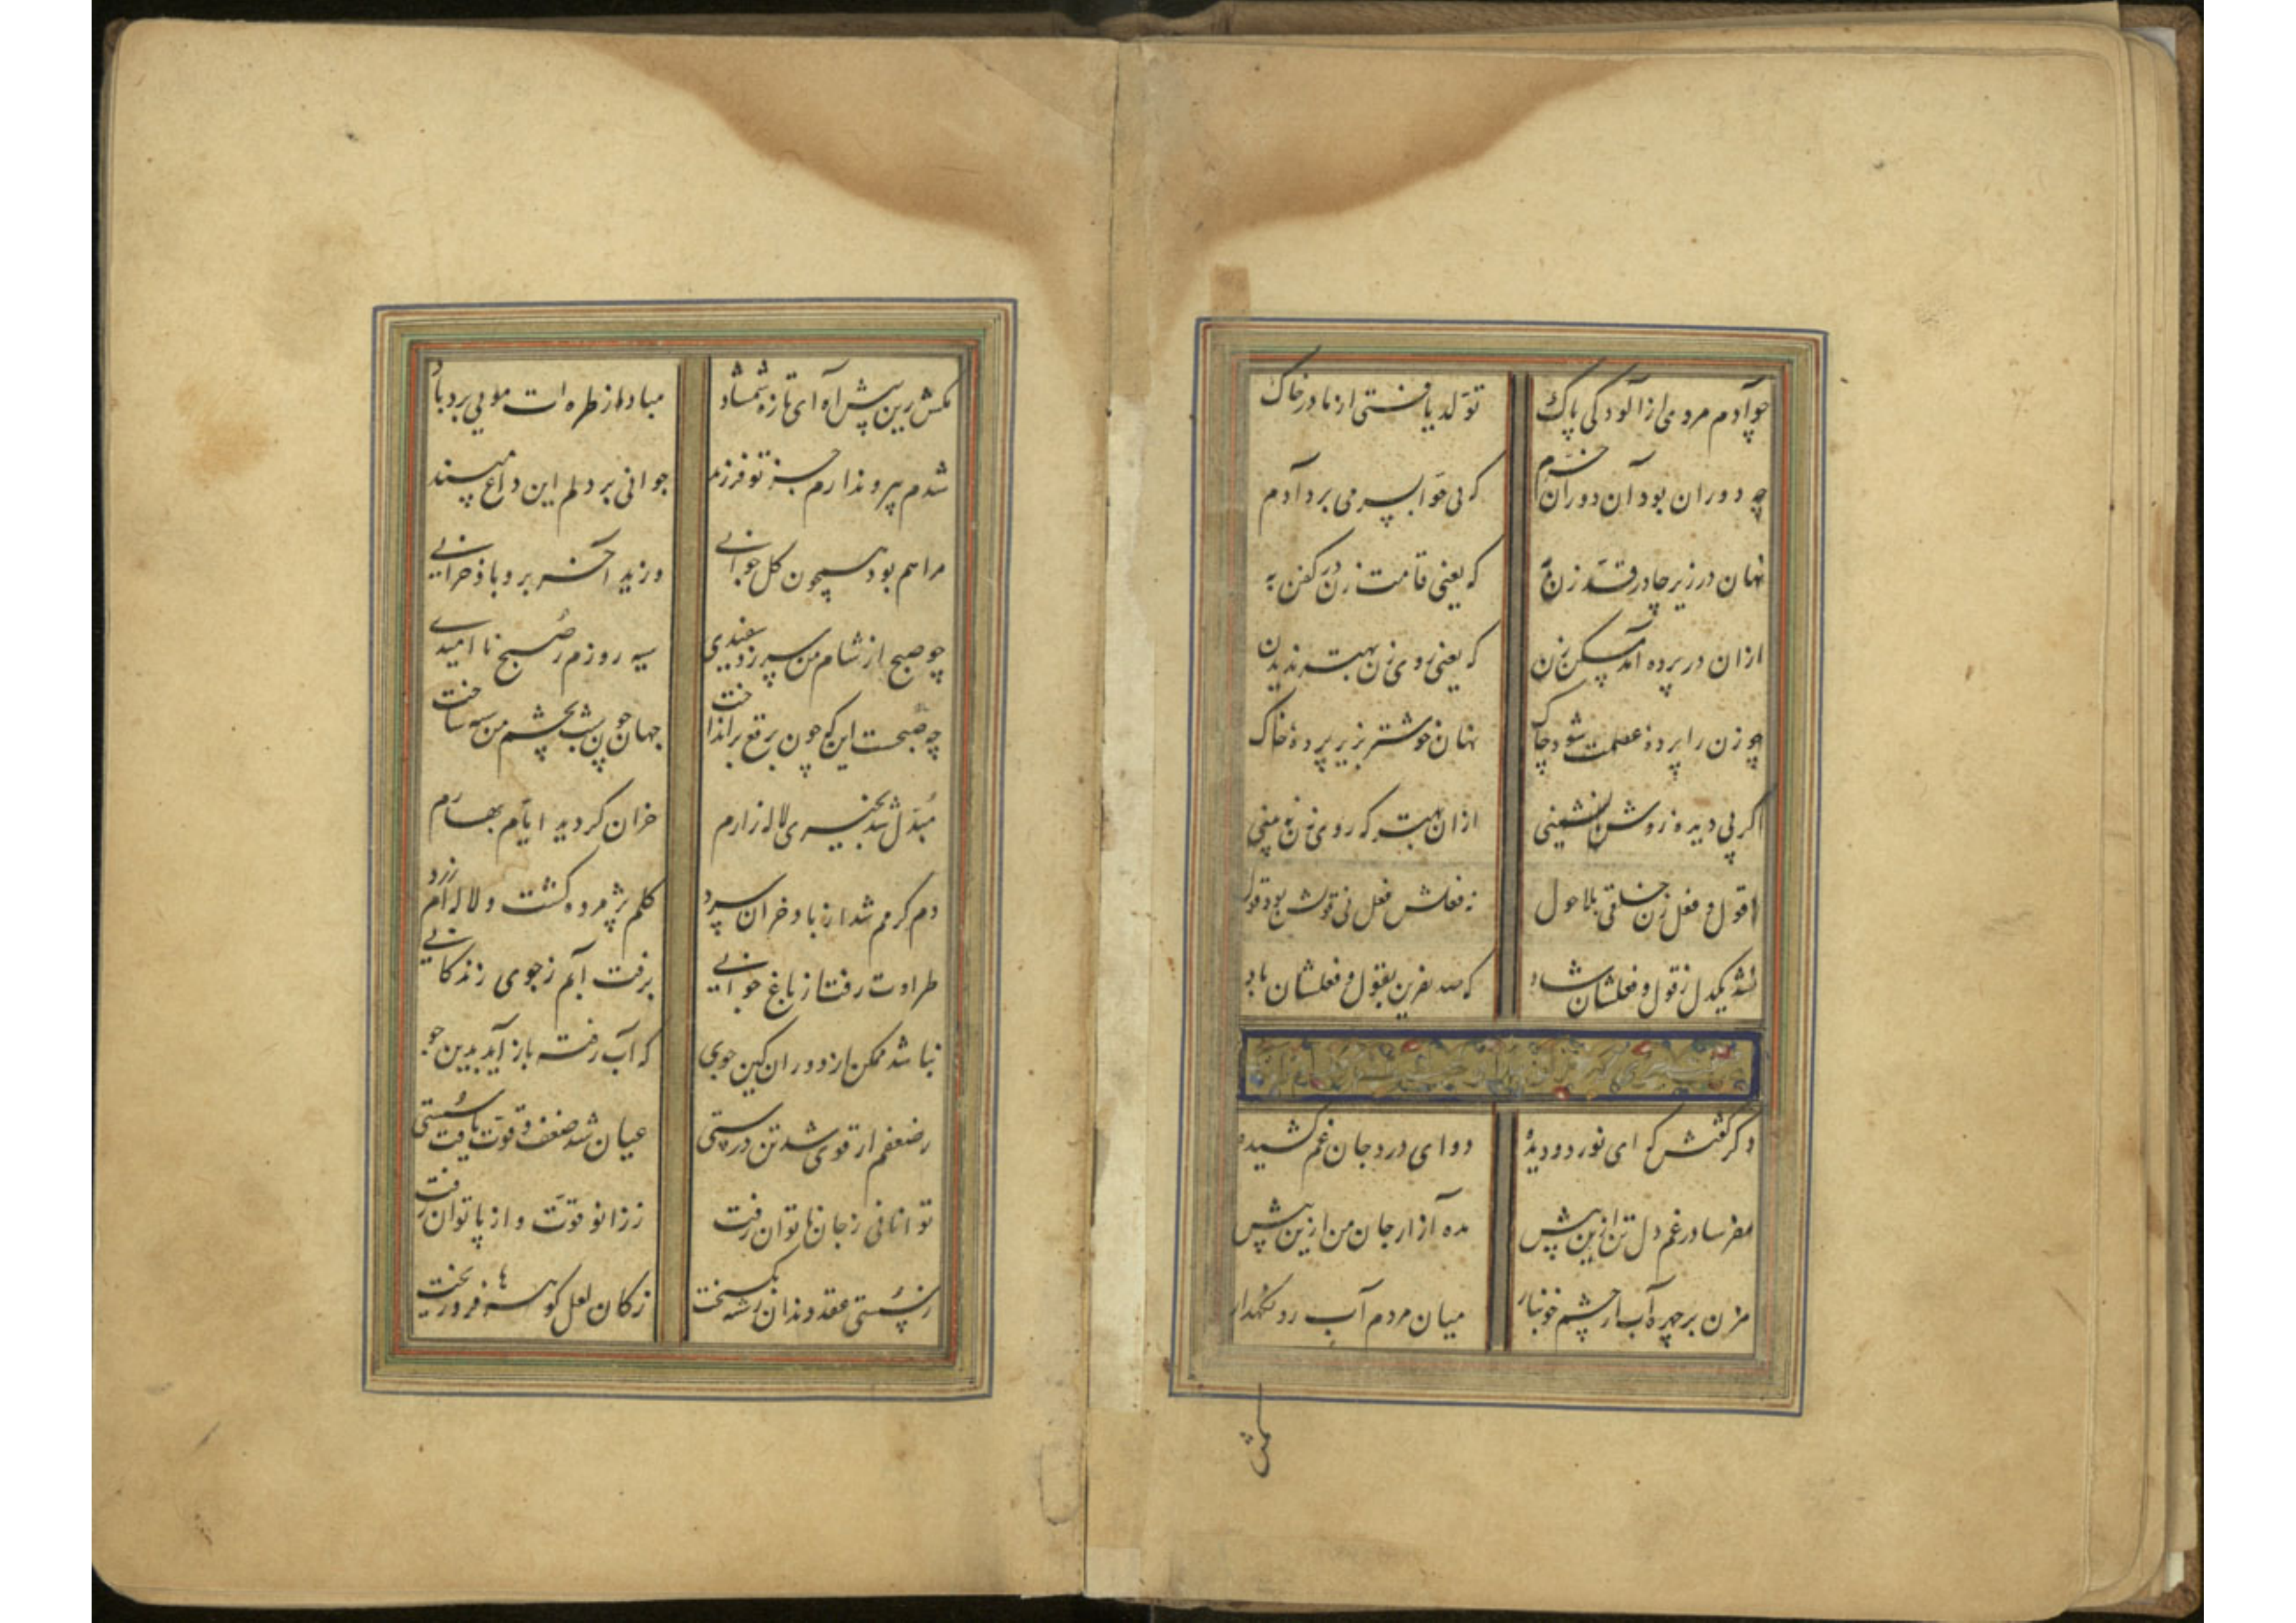 چو آدم مردمی از آلودگی پاک تولد یافتی از مادر خاک
چه دوران بود آن دوران خرم که بی حوا بسر می برد آدم
نهان در زیر چادر قد زن به که یعنی قامت زن در کفن به
ازان در پرده آمد مسکن زن که یعنی روی زن بهتر ندیدن
چو زن را پرده عصمت شود چاک نهان خوشتر بزیر پرده خاک
اگر بی دیده روشن نشینی ازان بهتر که روی زن نه بینی
از قول و فعل زن خلقی بلا حول نه فعلش فعل نی قولش بود قول
نشد یکدل ز قول و فعلشان شاد که صد نفرین بقول و فعلشان باد
دگر گفتش که ای نور دو دیده دوای درد جان غم کشیده
مفرسا در غم دل تن ازین بیش مده آزار جان من ازین بیش
مزن بر چهره آب از چشم خونبار میان مردم آب رو نگهدار
مکش
مکش زین بیش آه ای تازه شمشاد مبادا از طره ات مویی برد باد
شدم پیر و ندارم جز تو فرزند جوانی بر دلم این داغ مپسند
مرا هم بود همچون گل جوانی وزید آخر برو باد خزانی
چو صبح از شام من سر زد سفیدی سیه روزم ز صبح ناامیدی
چه صبحست این که چون برقع برانداخت جهان چون شب بچشم من سیه ساخت
مبدل شد بخیری لاله زارم خزان گردید ایام بهارم
دم گرمم شد از باد خزان سرد گلم پژمرده گشت و لاله ام زرد
طراوت رفت از باغ جوانی برفت آبم ز جوی زندگانی
نباشد ممکن از دوران کین جوی که آب رفته باز آید بدین جو
ز ضعفم ار قوی شد تن درستی عیان شد ضعف و قوت یافت سستی
توانائی ز جان ناتوان رفت ز زانو قوت و از پا توان رفت
ز سستی عقد دندان رشته بگسیخت ز کان لعل گوهرها فرو ریخت